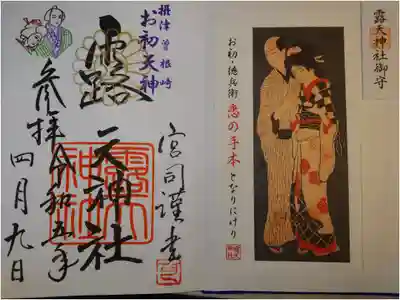 露天神社御守
お初・徳兵衛 恋の手本 となりにけり
摂津曽根崎
お初天神
露
天神社
宮司謹書
参拝 令和五年
四月九日